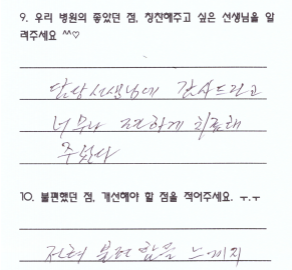 9. 우리 병원의 좋았던 점, 칭찬해주고 싶은 선생님을 알
려주세요 ^^♡
담당선생님께 감사드리고
너무나 편하게 치료해
주셨다
10. 불편했던 점, 개선해야 할 점을 적어주세요. ㅜ.ㅜ
전혀 불편함을 느끼지